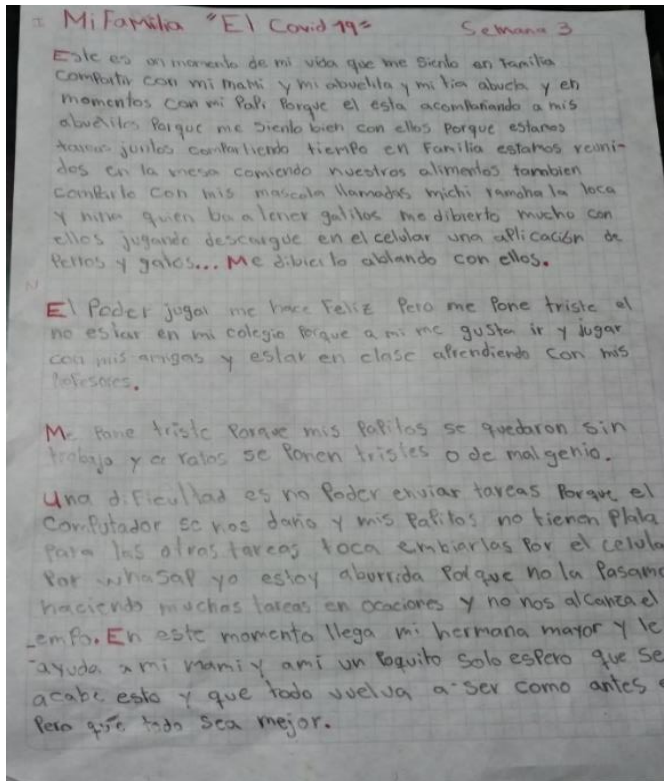 Mi Familia "El Covid 19"        Semana 3
Este es un momento de mi vida que me siento en familia
compartir con mi mami y mi abuelita y mi tia abuela y en
momentos con mi Papi Porque el esta acompañando a mis
abuelitos Porque me siento bien con ellos Porque estamos
juntos compartiendo tiempo en Familia estamos reuni-
dos en la mesa comiendo nuestros alimentos tambien
comparto con mis mascota llamadas michi ramona la loca
y nina quien ba a tener gatitos me dibierto mucho con
ellos jugando descargue en el celular una aplicación de
Perros y gatos... Me dibierto ablando con ellos.
El Poder jugar me hace Feliz Pero me Pone triste el
no estar en mi colegio Porque a mi me gusta ir y jugar
con mis amigas y estar en clase aprendiendo con mis
Profesores.
Me Pone triste Porque mis Papitos se quedaron sin
trabajo y a ratos se Ponen tristes o de mal genio.
Una dificultad es no Poder enviar tareas Porque el
Computador se nos daño y mis Papitos no tienen Plata
Para las otras tareas toca embiarlas Por el celula
Por whasap yo estoy aburrida Porque no la Pasamo
haciendo muchas tareas en ocaciones y no nos alcanza el
empo. En este momento llega mi hermana mayor y le
ayuda a mi mami y ami un Poquito solo espero que se
acabe esto y que todo vuelva a ser como antes
Pero que todo sea mejor.